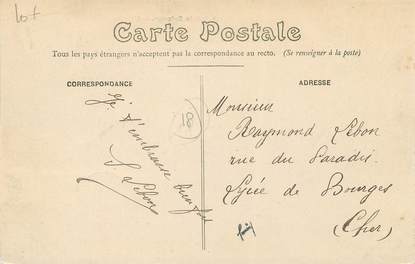 lot
Carte Postale
Tous les pays étrangers n'acceptent pas la correspondance au recto. (Se renseigner à la poste)
CORRESPONDANCE
Je t'embrasse bien fort
Lebon
18
ADRESSE
Monsieur
Raymond Lebon
rue du Paradis
Lycée de Bourges
(Cher)